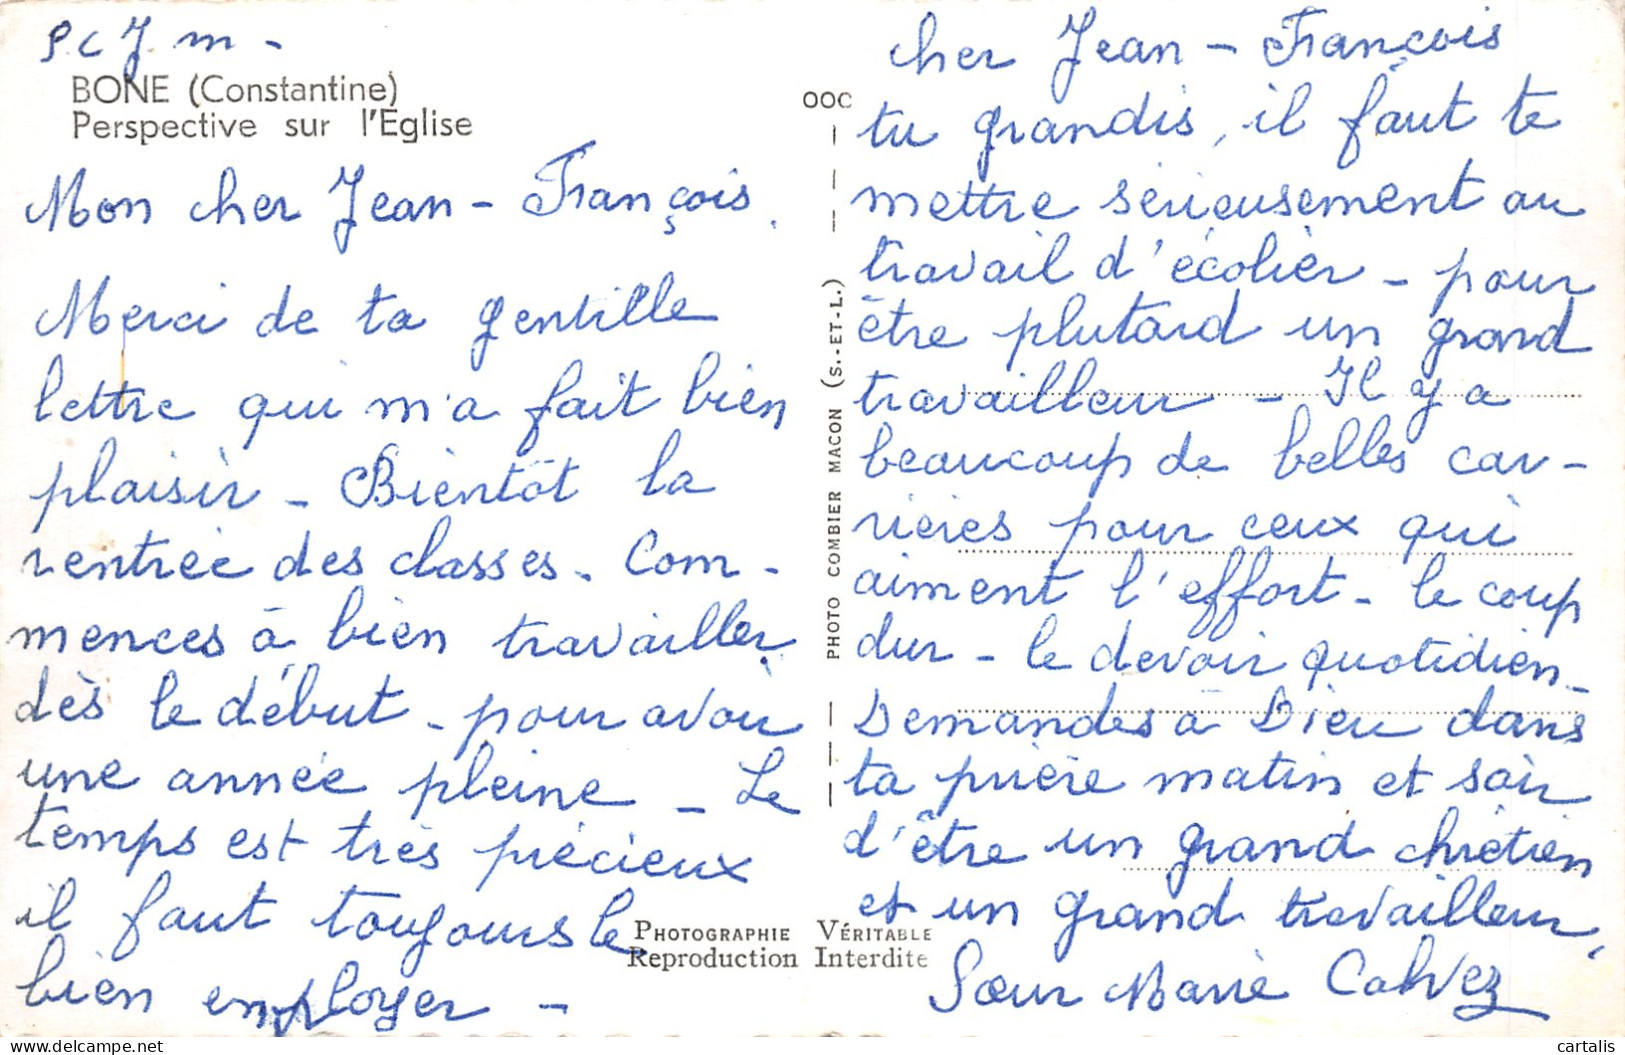 P.C.J.m -
BONE (Constantine)
Perspective sur l'Eglise
Mon cher Jean-François.
Merci de ta gentille
lettre qui m'a fait bien
plaisir - Bientôt la
rentrée des classes. Com-
mences à bien travailler
dès le début - pour avoir
une année pleine - Le
temps est très précieux
il faut toujours le
bien employer -
OOC
PHOTO COMBIER MACON (S.-ET-L.)
PHOTOGRAPHIE VÉRITABLE
Reproduction Interdite
cher Jean-François
tu grandis, il faut te
mettre sérieusement au
travail d'écolier - pour
être plutard un grand
travailleur - Il y a
beaucoup de belles car-
rières pour ceux qui
aiment l'effort - le coup
dur - le devoir quotidien -
Demandes à Dieu dans
ta prière matin et soir
d'être un grand chrétien
et un grand travailleur,
Sœur Marie Calvez
cartalis